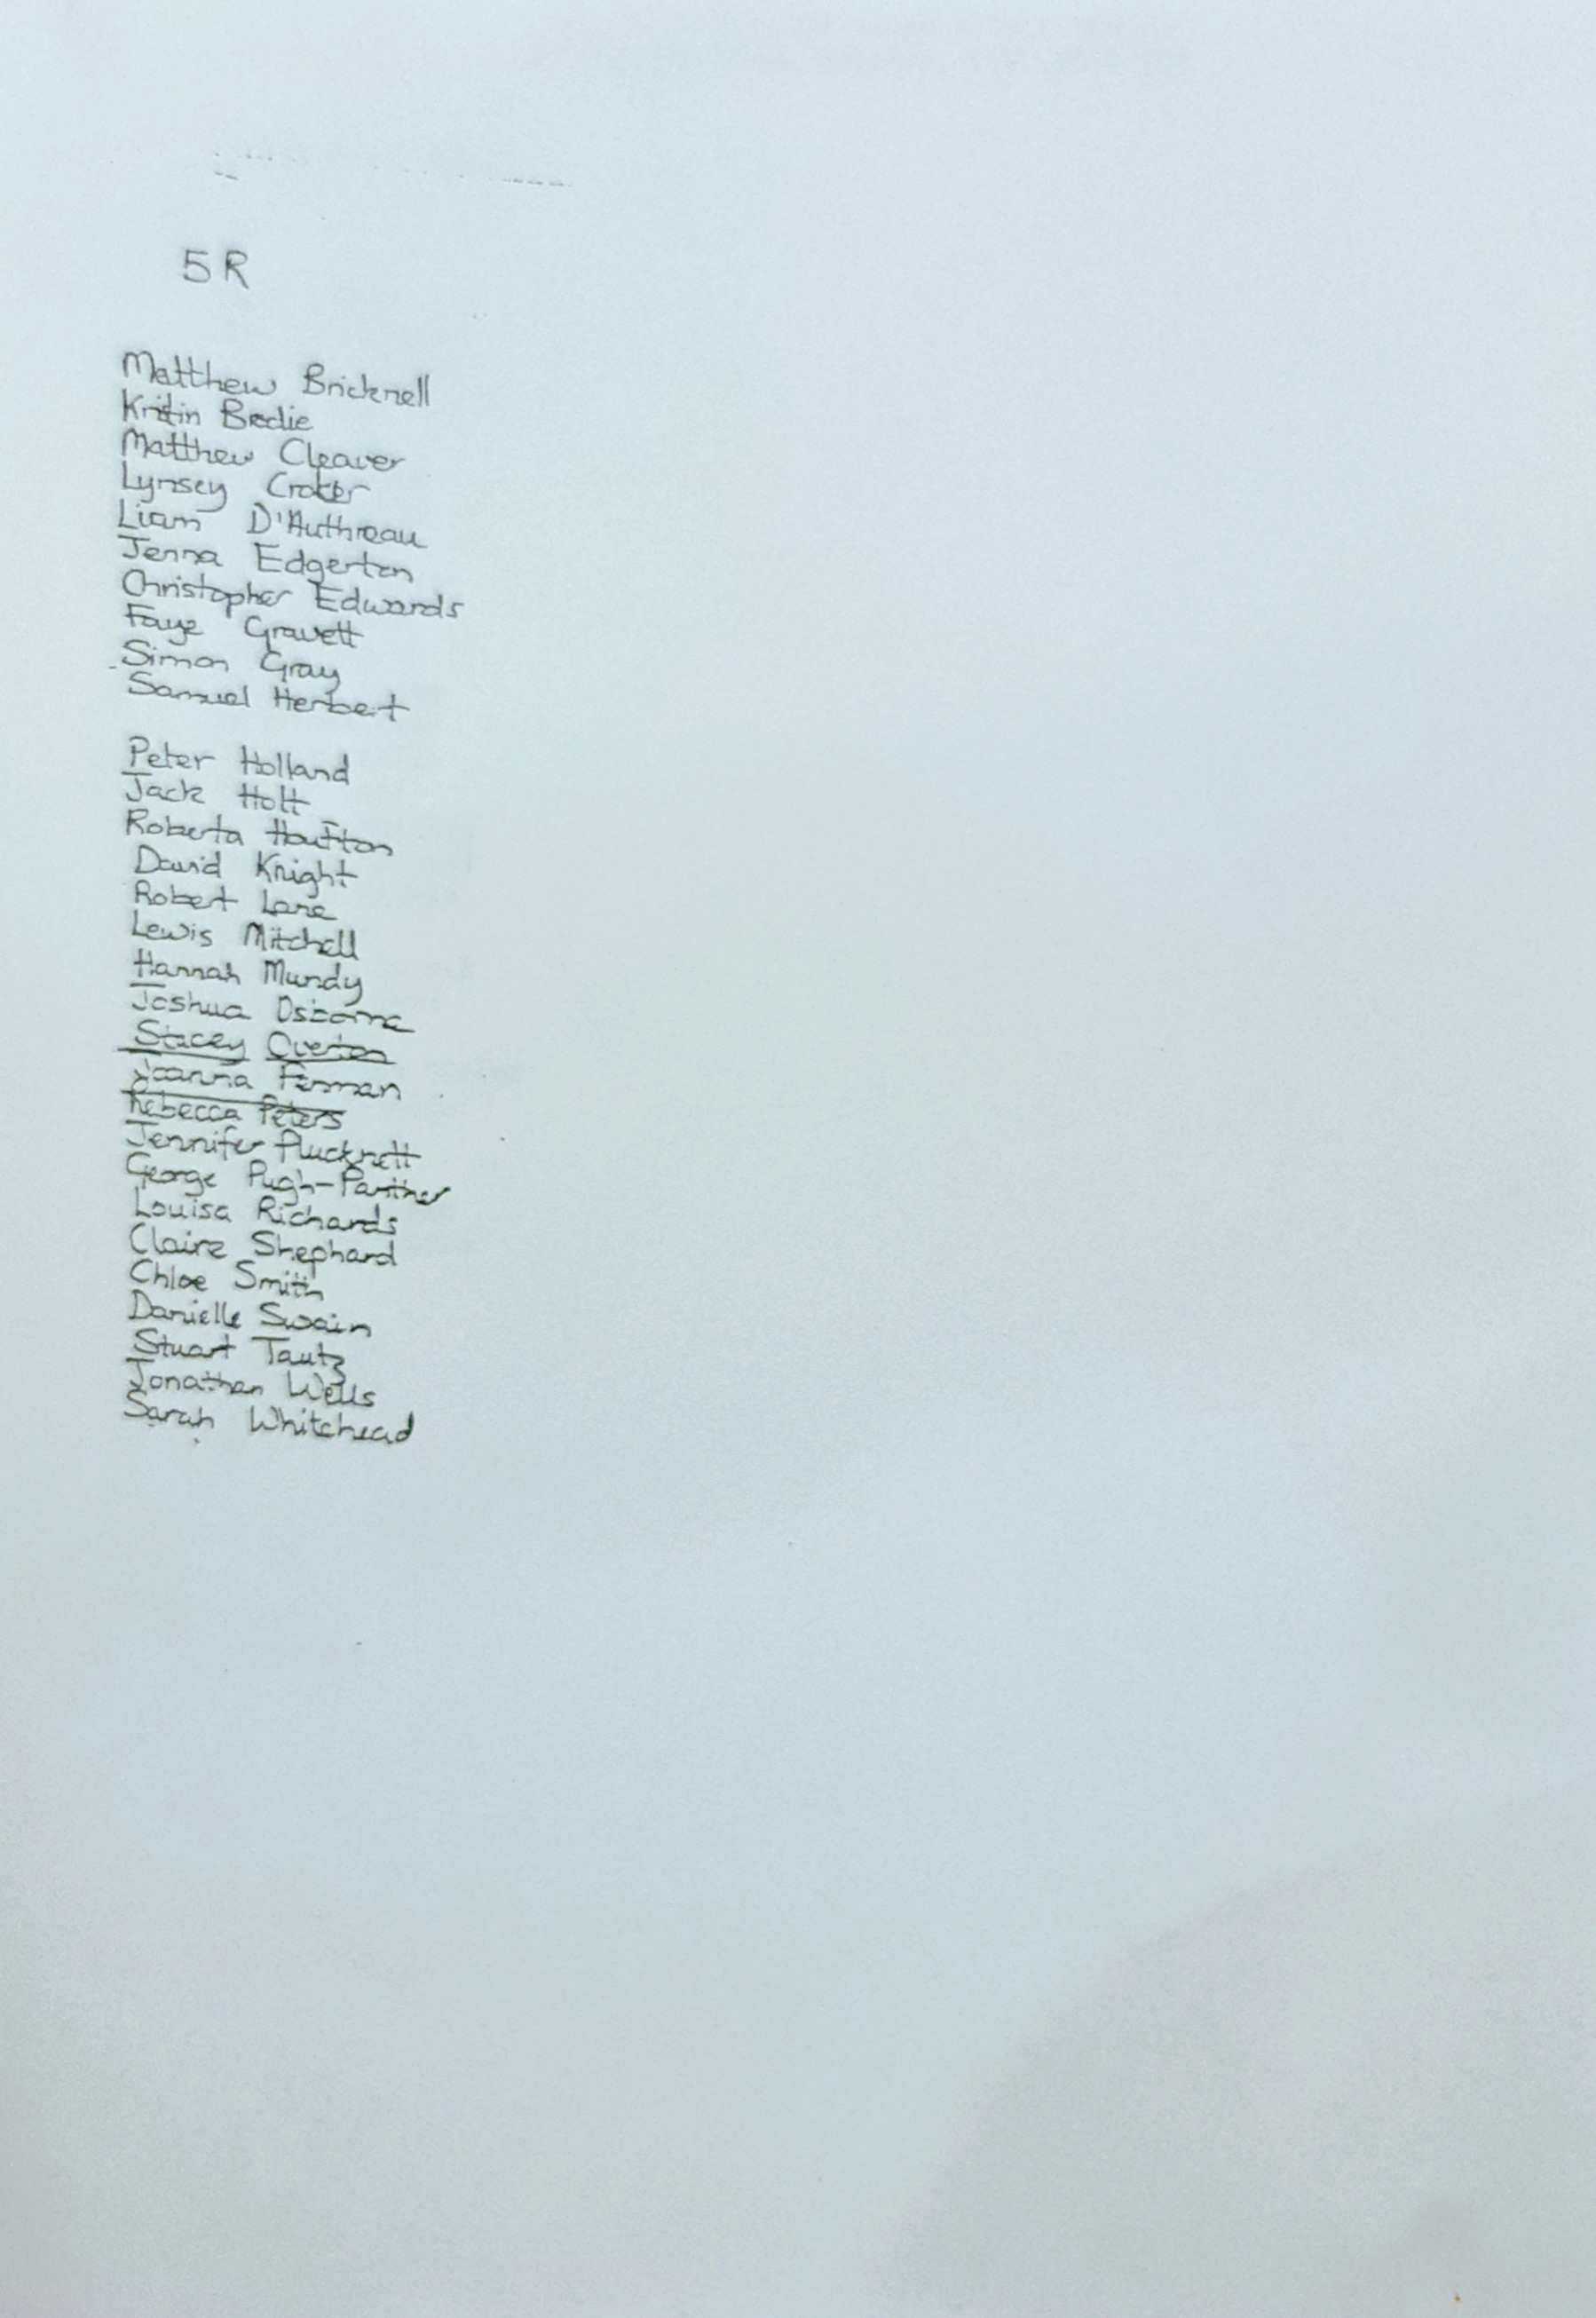 5R
Matthew Bricknell
Kristin Brodie
Matthew Cleaver
Lynsey Croker
Liam D'Authreau
Jenna Edgerton
Christopher Edwards
Faye Gravett
Simon Gray
Samuel Herbert
Peter Holland
Jack Holt
Roberta
David Knight
Robert Lane
Lewis Mitchell
Hannah Mundy
Joshua Osborne
Stacey Overton
Joanna
Rebecca Peters
Jennifer Plucknett
George Pugh-Panther
Louisa Richards
Claire Shephard
Chloe Smith
Danielle Swain
Stuart Tautz
Jonathan Wells
Sarah Whitehead